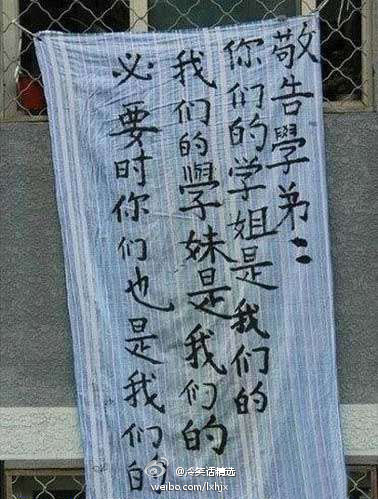 敬告學弟：
你们的学姐是我们的
我们的學妹是我们的
必要时你们也是我们的
@冷笑话精选
weibo.com/lxhjx